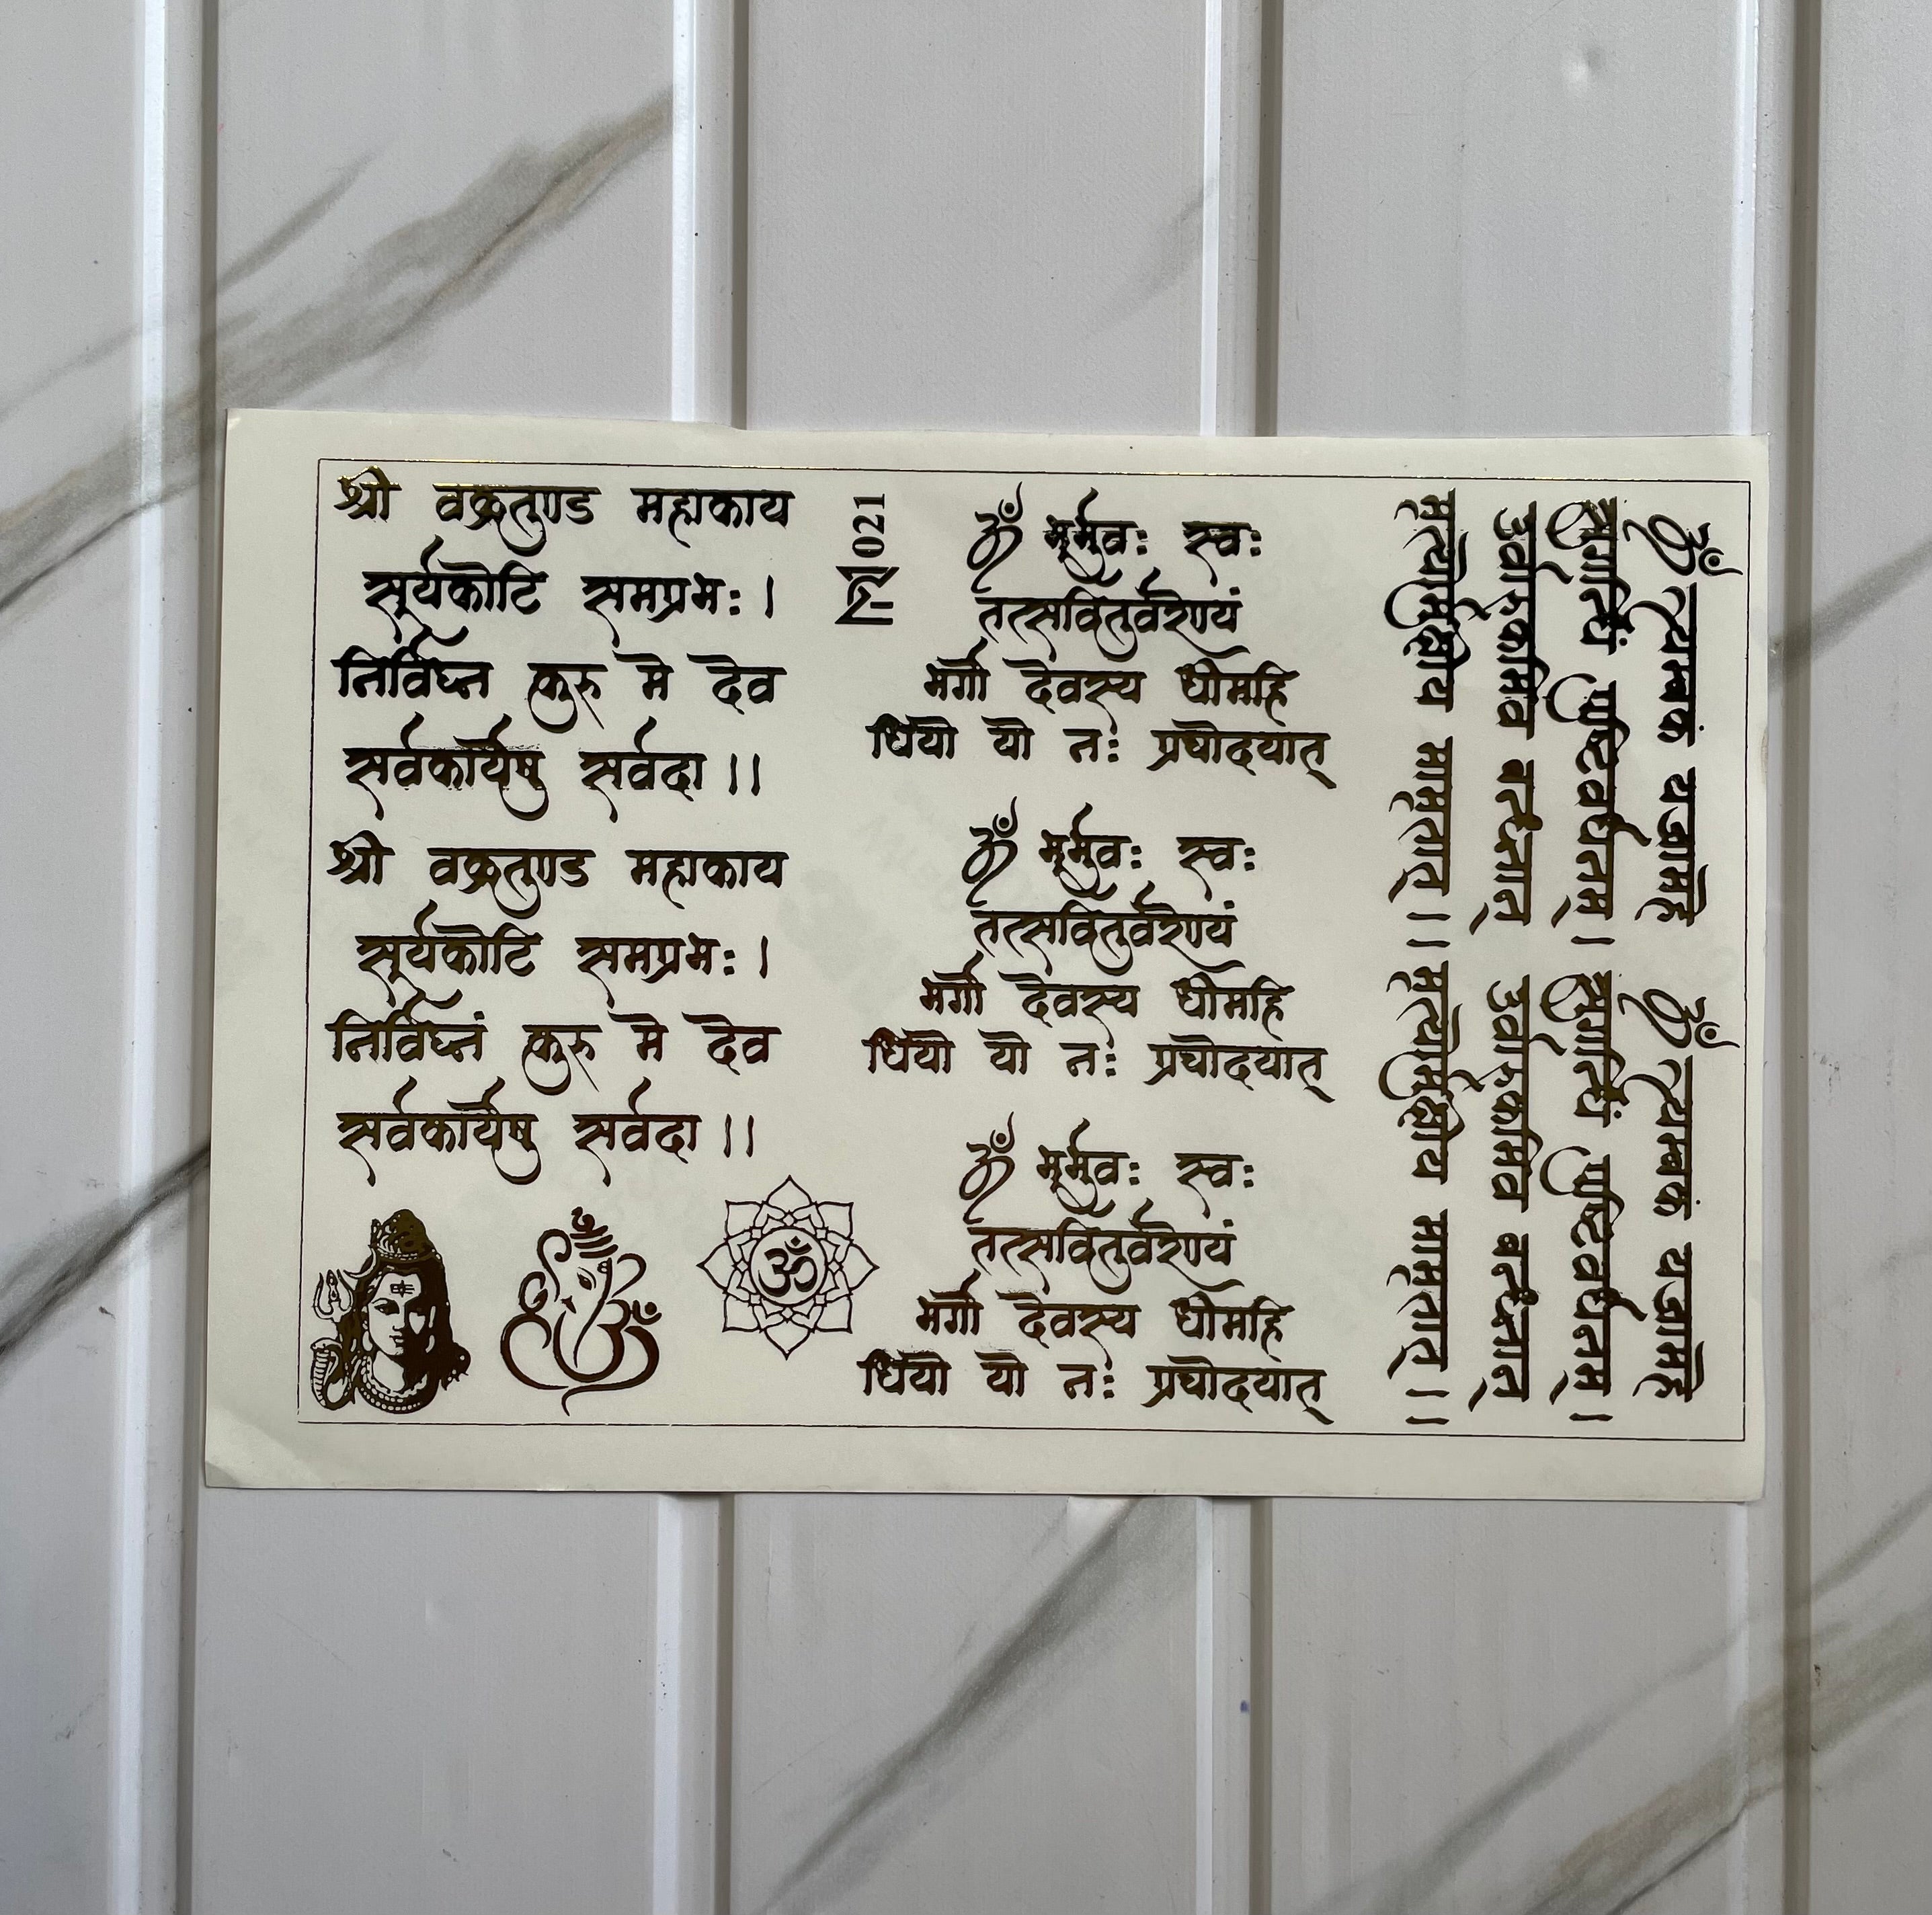 श्री वक्रतुण्ड महाकाय
सूर्यकोटि समप्रभेः ।
निर्विघ्न कुरु मे देव
सर्वकार्येषु सर्वदा ।।
श्री वक्रतुण्ड महाकाय
सूर्यकोटि समप्रभेः ।
निर्विघ्नं कुरु मे देव
सर्वकार्येषु सर्वदा ।।
ॐ
021
ॐ भूर्भुवः स्वः
तत्सवितुर्वरेण्यं
भर्गो देवस्य धीमहि
धियो यो नः प्रचोदयात्
ॐ भूर्भुवः स्वः
तत्सवितुर्वरेण्यं
भर्गो देवस्य धीमहि
धियो यो नः प्रचोदयात्
ॐ भूर्भुवः स्वः
तत्सवितुर्वरेण्यं
भर्गो देवस्य धीमहि
धियो यो नः प्रचोदयात्
ॐ त्र्यम्बकं यजामहे
सुगन्धिं पुष्टिवर्धनम् ।
उर्वारुकमिव बन्धनात्
मृत्योर्मुक्षीय मामृतात् ।।
ॐ त्र्यम्बकं यजामहे
सुगन्धिं पुष्टिवर्धनम् ।
उर्वारुकमिव बन्धनात्
मृत्योर्मुक्षीय मामृतात् ।।